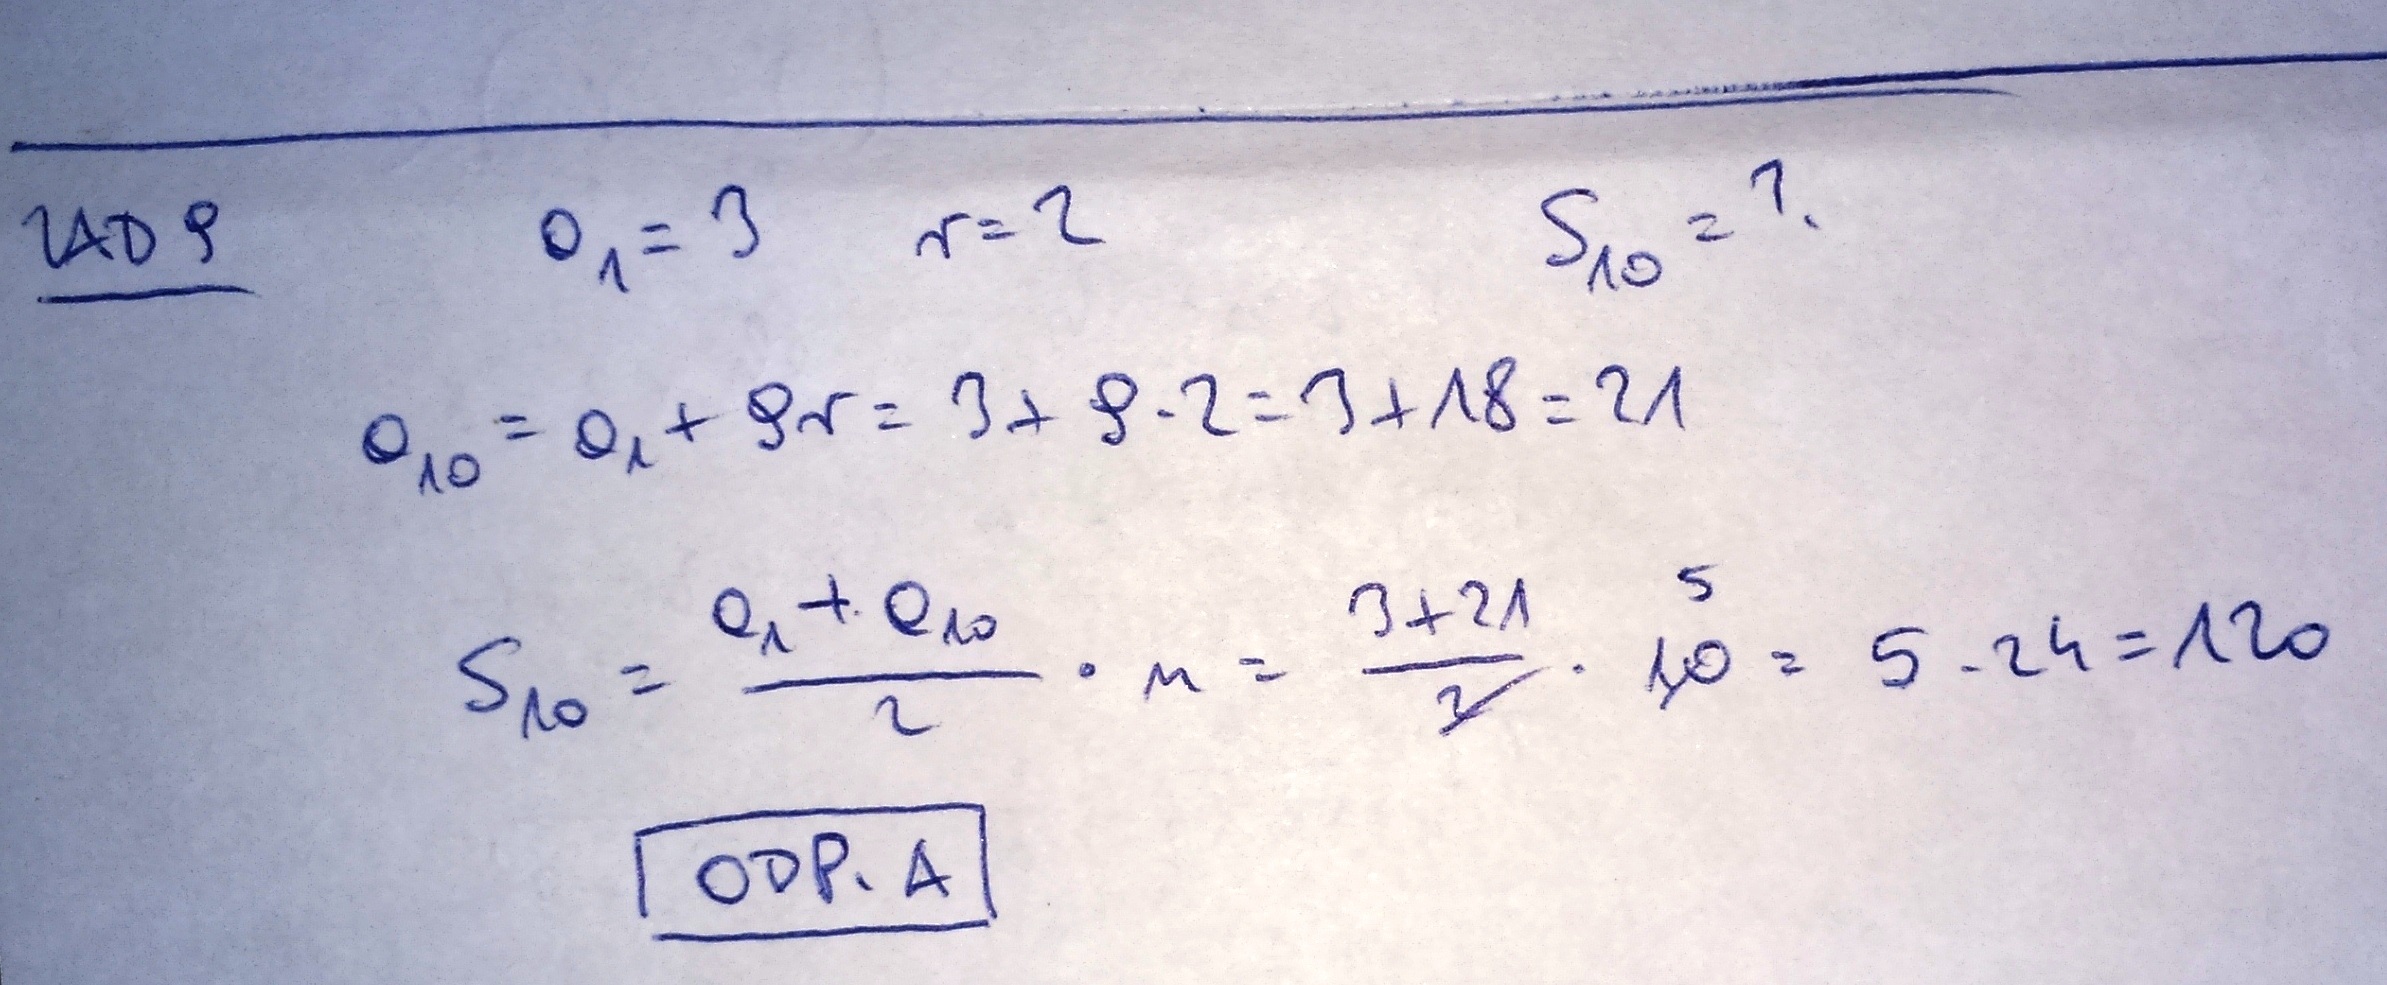 ZAD 9 a₁ = 3 r = 2 S₁₀ = ?.
a₁₀ = a₁ + 9r = 3 + 9 · 2 = 3 + 18 = 21
S₁₀ = (a₁ + a₁₀)/2 · n = (3 + 21)/2 · 10 5 = 5 · 24 = 120
ODP. A